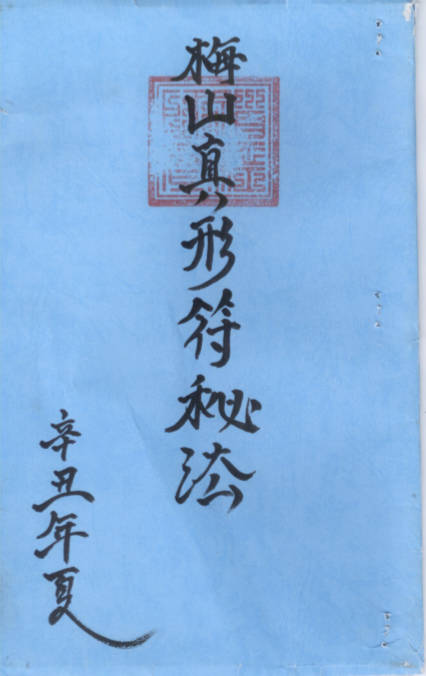 梅山真形符秘法
辛丑年夏